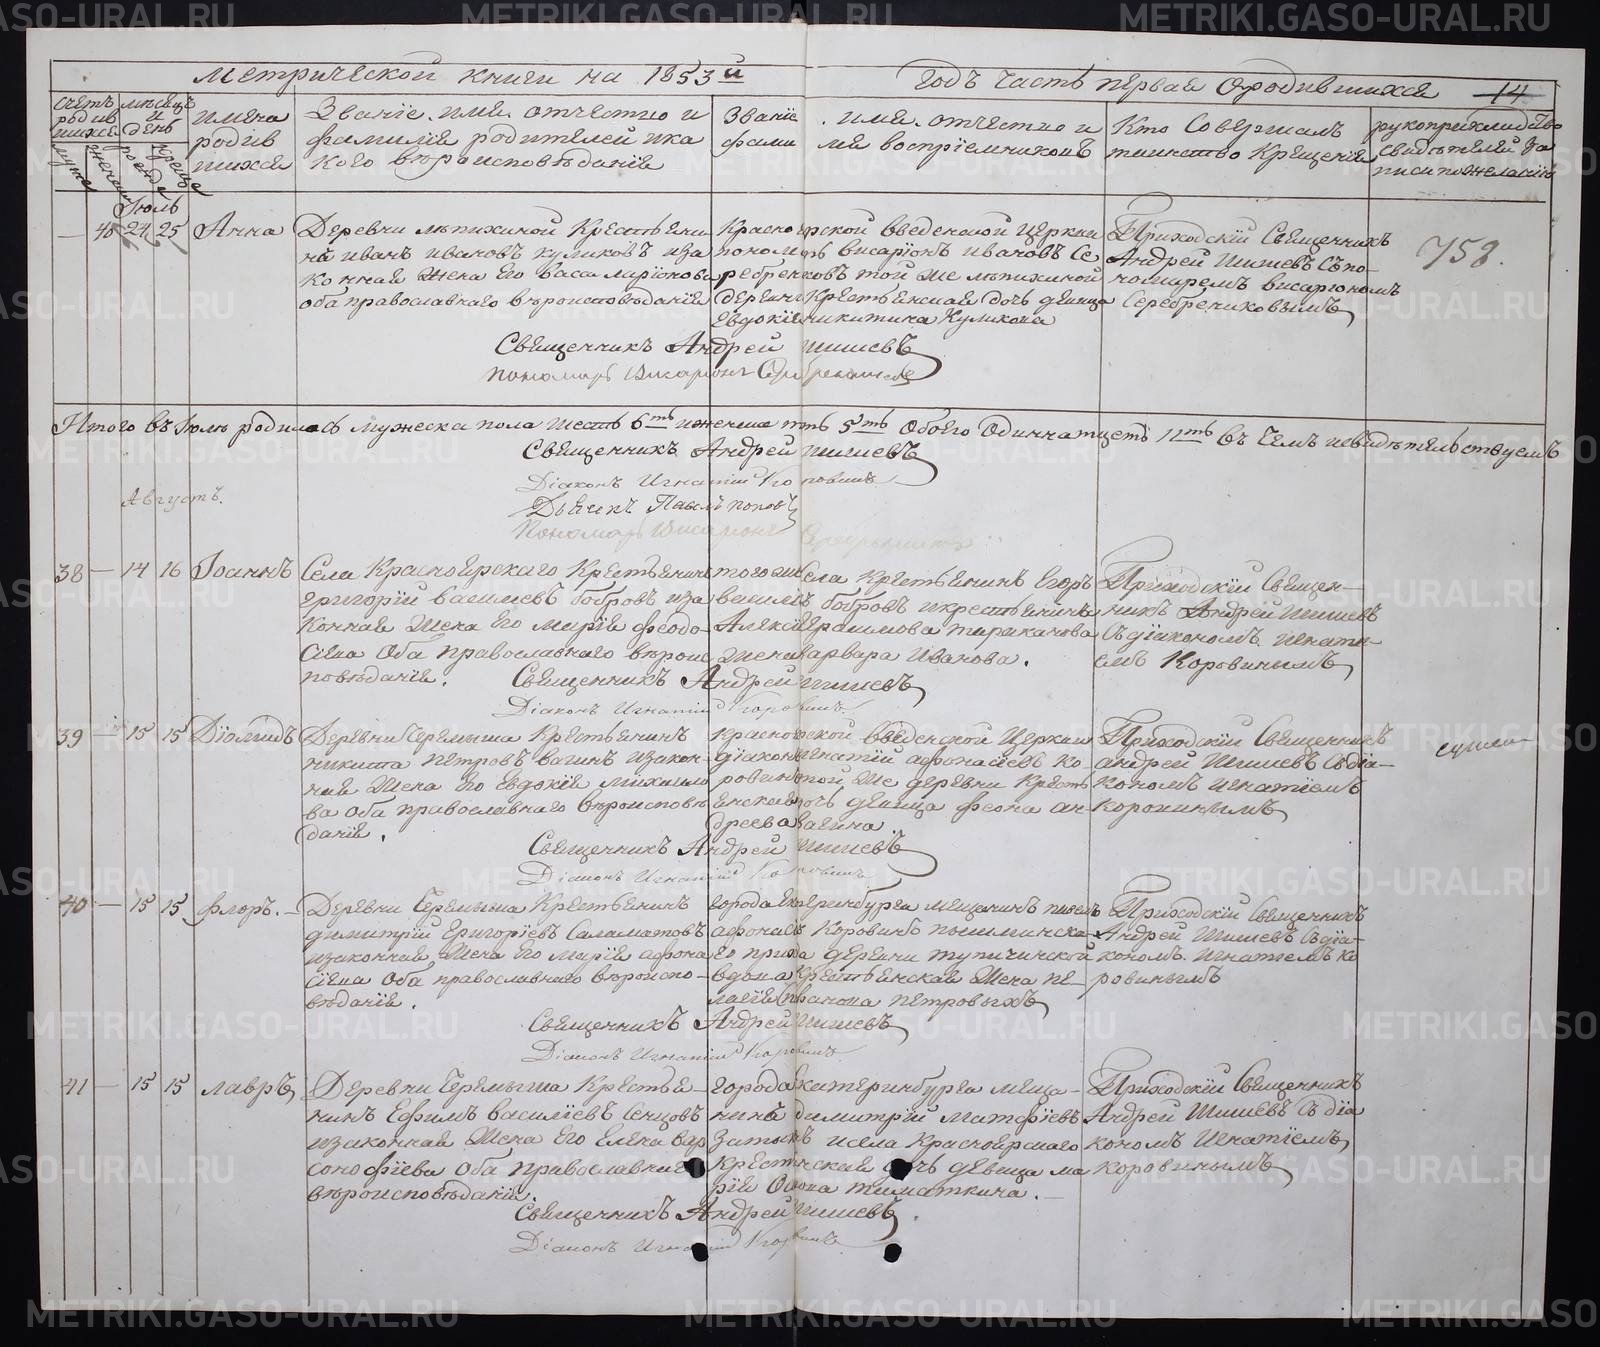 Метрической книги на 1853й годъ часть первая о родившихся 14
счетъ родившихся
мужеска
женска
мѣсяцъ и день
рожде
креще
имена родившихся
Званіе, имя, отчество и
фамилія родителей и ка
кого вѣроисповѣданія
Званіе, имя, отчество и
фамилія воспріемниковъ
Кто Совершалъ
таинство Крещенія
рукоприкладство
свидѣтелей за
писи по желанію
Іюль
— 40 24 25 Анна
Деревни лѣпихиной Крестьяни
нъ иванъ ивановъ куликовъ и за
конная Жена Его васа ларіонова
оба православнаго вѣроисповѣданія
Красноярской введенской церкви
пономарь висаріонъ ивановъ Се
ребрениковъ той же лѣпихиной
деревни Крестьянская дочь девица
Евдокия никитина Куликова
Приходскій Священникъ
Андрей Шишевъ съ по-
номаремъ висаріономъ
Серебрениковымъ
758.
Священникъ Андрей шишевъ
пономарь Висаріонъ Серебрениковъ
Итого въ Іюлѣ родилось мужеска пола шесть 6ть и женска пять 5ть Обоего Одиннатцеть 11ть въ чемъ и свидѣтельствуемъ
Священникъ Андрей шишевъ
Діаконъ Игнатій Коровинъ
Дьячекъ Павелъ поповъ
Пономарь Висаріонъ Серебрениковъ
Августъ.
38 — 14 16 Іоаннъ
Села Красноярскаго Крестьянинъ
григорій васильевъ бобровъ и за
Конная Жена Его Марія феодо-
сіева Оба православнаго вѣроис
повѣданія.
того же села Крестьянинъ Егоръ
василевъ бобровъ и крестьянина
Алексія
Жена варвара Иванова.
Приходскій Священ-
никъ Андрей Шишевъ
съ діакономъ Игнаті-
емъ Коровинымъ
Священникъ Андрей шишевъ
Діаконъ Игнатій Коровинъ
39 — 15 15 Діомидъ
Деревни Черемыша Крестьянинъ
никита петровъ вагинъ и закон-
ная Жена Его Евдокия михаило
ва оба православнаго вѣроисповѣ
данія.
Красноярской введенской Церкви
діаконъ игнатій афонасіевъ Ко-
ровинъ той же деревни Кресть
янская дочь девица феона ан
дреева вагина
Приходскій Священникъ
андрей Шишевъ съ діа-
кономъ игнатіемъ
Коровинымъ
Священникъ Андрей шишевъ
Діаконъ Игнатій Коровинъ
40 — 15 15 флоръ.
Деревни Черемыша Крестьянинъ
димитрій Григоріевъ Саламатовъ
и законная Жена Его Марія афона
сіева Оба православнаго вѣроиспо-
вѣданія.
города Екатеринбурга мещанинъ павелъ
афонасіевъ Коровинъ пышминска-
го прихода деревни тупичинской
вдова Крестьянская Жена пе-
лагія петровыхъ
Приходскій Священникъ
Андрей Шишевъ съ діа-
кономъ. Игнатіемъ Ко
ровинымъ
Священникъ Андрей шишевъ
Діаконъ Игнатій Коровинъ
41 — 15 15 лавръ
Деревни Черемыша Крестья-
нинъ Ефимъ василіевъ Сенцовъ
и законная Жена Его Елена вар
сонофіева оба православнаго
вѣроисповѣданія.
города Екатеринбурга меща-
нинъ димитрій матфіевъ
и села Красноярскаго
Крестьянская дочь девица ма
рія
Приходскій Священникъ
Андрей Шишевъ съ діа
кономъ Игнатіемъ
Коровинымъ
Священникъ Андрей шишевъ.
Діаконъ Игнатій Коровинъ
METRIKI.GASO-URAL.RU